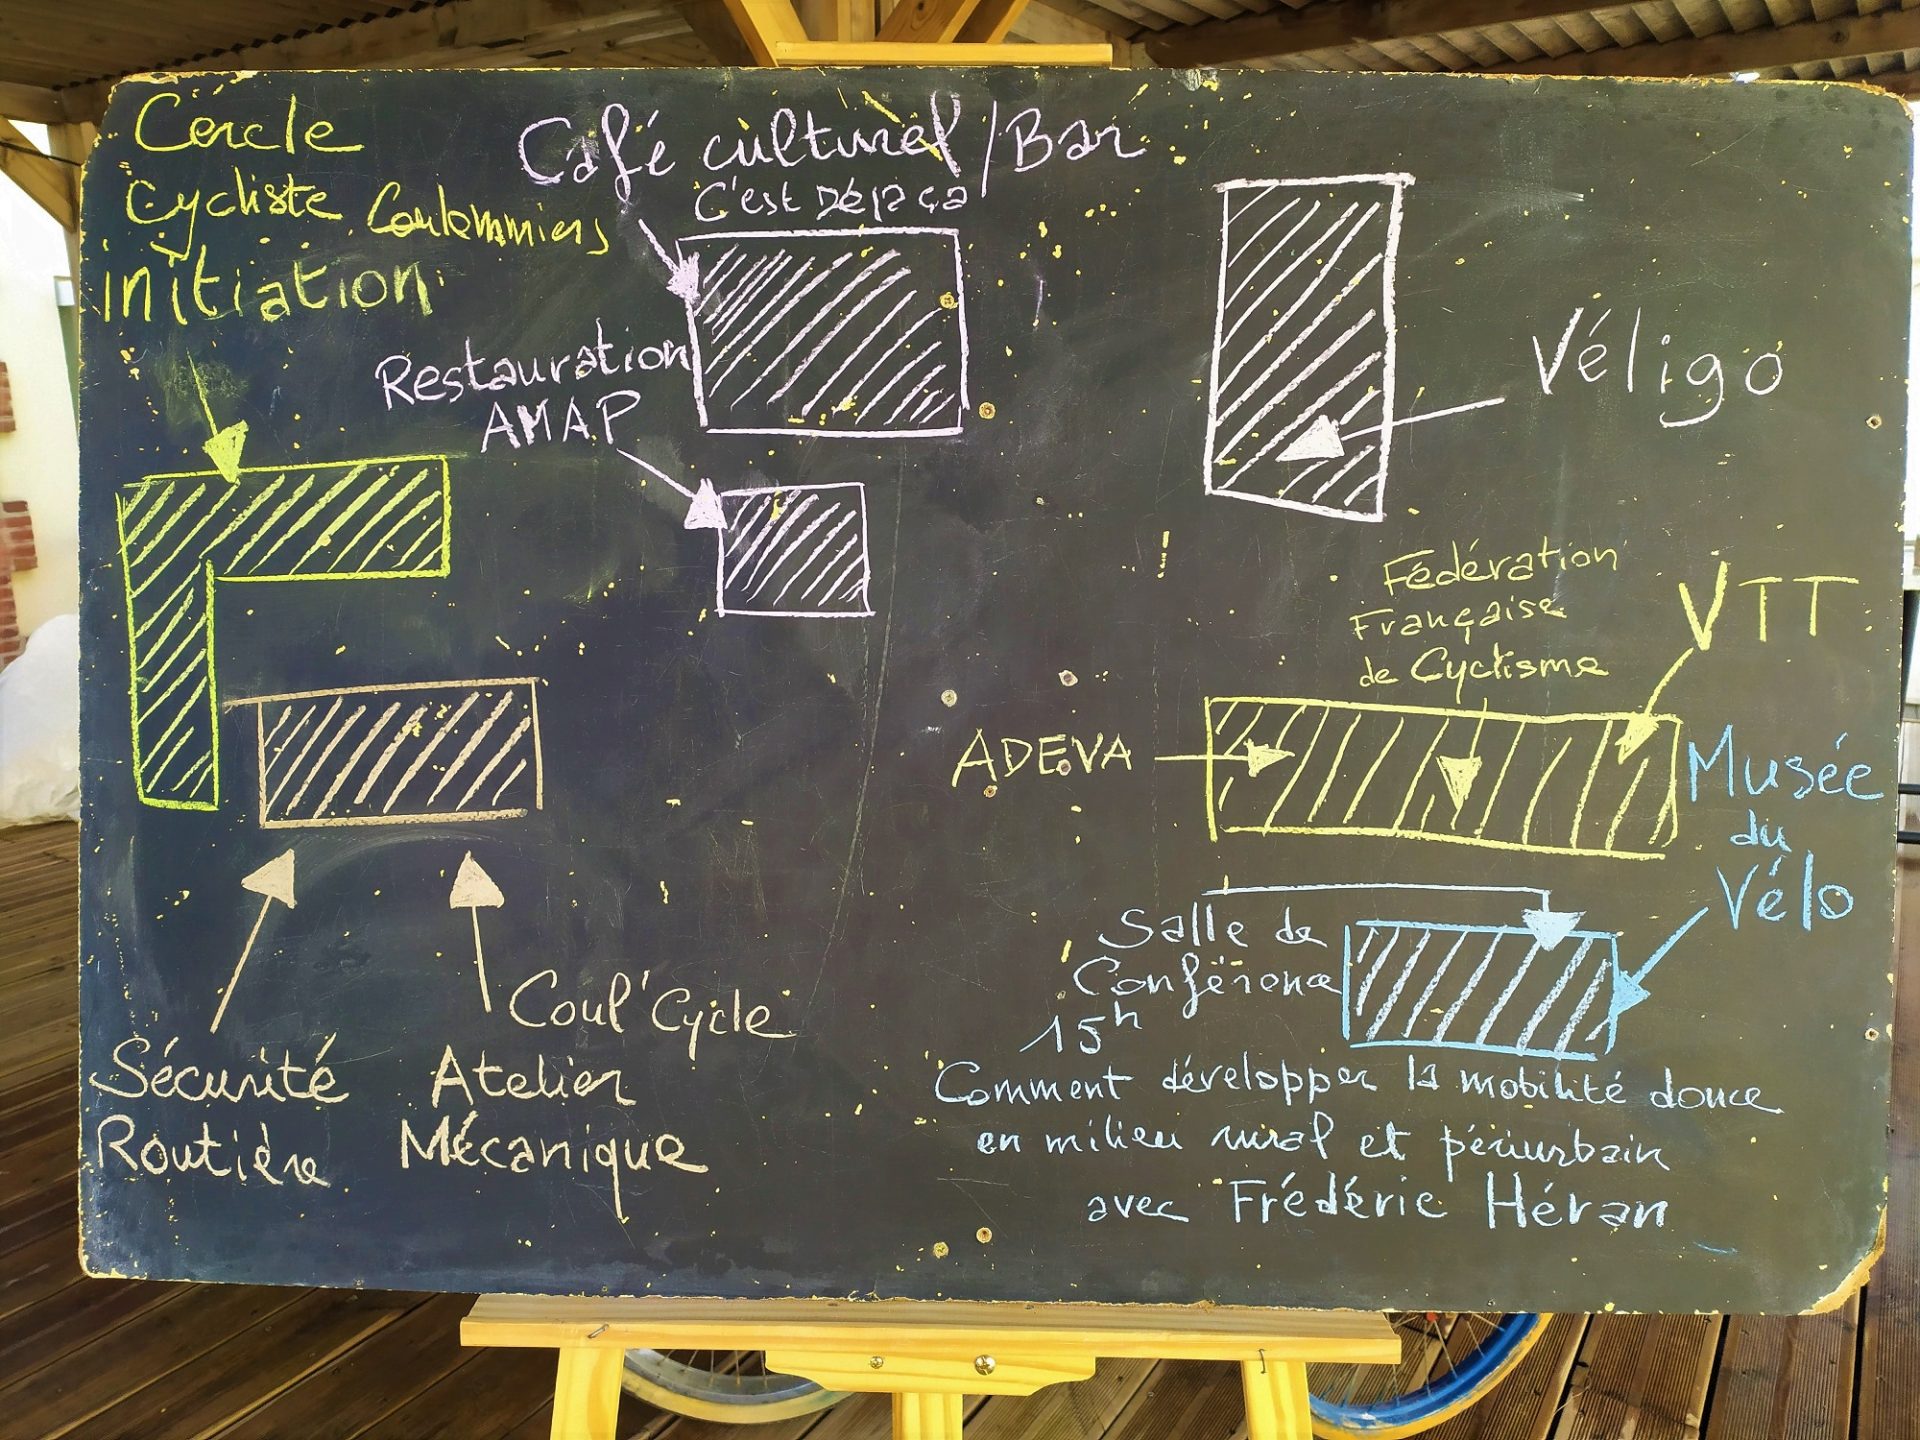 Cercle
Cycliste Coulommiers
initiation
Café culturel / Bar
C'est Déjà ça
Restauration
AMAP
Véligo
Fédération
Française
de Cyclisme
VTT
ADEVA
Musée
du
Vélo
Salle de
Conférence
15h
Comment développer la mobilité douce
en milieu rural et périurbain
avec Frédéric Héran
Coul'Cycle
Atelier
Mécanique
Sécurité
Routière